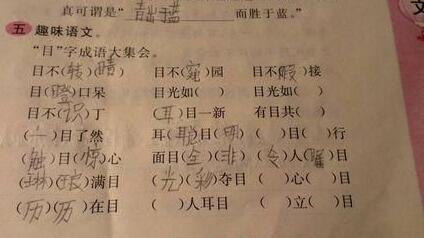 真可谓是"青出于蓝 而胜于蓝。"
五 趣味语文。
"目"字成语大集会。
目不(转)(睛) 目不(窥)园 目不(暇)接
目(瞪)口呆 目光如( ) 目光如( )
目不(识)丁 (耳)目一新 有目共( )
(一)目了然 耳(聪)目(明) ( )目( )行
(触)目(惊)心 面目(全)(非) (令)人(瞩)目
(琳)(琅)满目 (光)(彩)夺目 ( )心( )目
(历)(历)在目 ( )人耳目 ( )立( )目
文